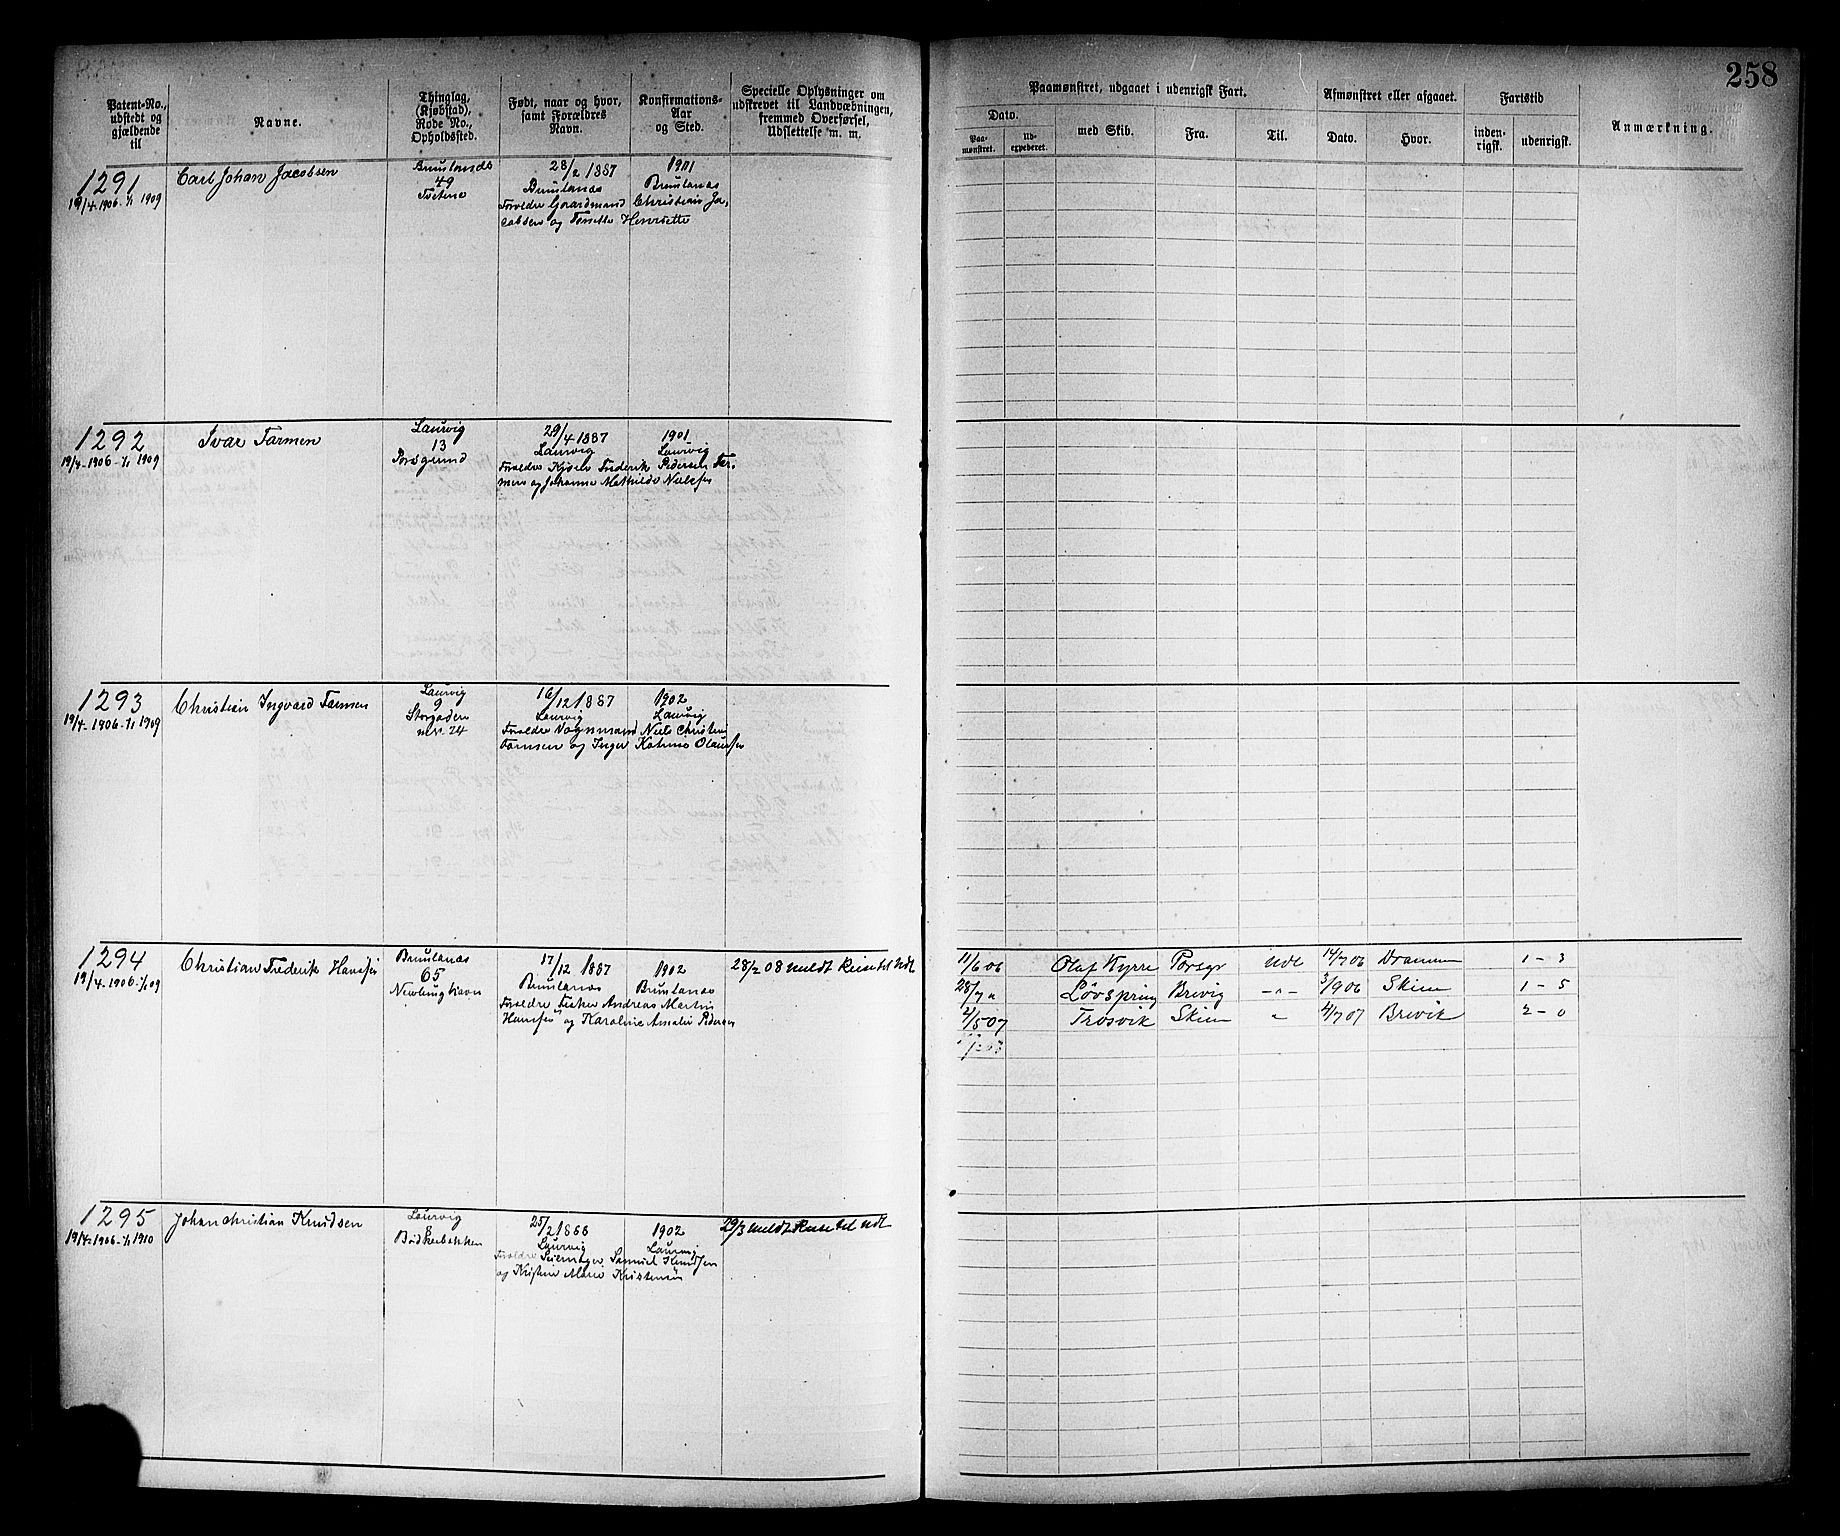 258
Patent-No., udstedt og gjældende til
Navne.
Thinglag, (Kjøbstad), Rode No., Opholdssted.
Født, naar og hvor, samt Forældres Navn.
Konfirmations-Aar og Sted.
Specielle Oplysninger om udskrevet til Landvæbningen, fremmed Overførsel, Udslettelse m. m.
Paamønstret, udgaaet i udenrigsk Fart.
Dato.
Paa-mønstret.
Ud-expederet.
med Skib.
Fra.
Til.
Afmønstret eller afgaaet.
Dato.
Hvor.
Fartstid
inden-rigsk.
udenrigsk.
Anmærkning.
1291
19/4-1906-1/1 1909
Carl Johan Jacobsen
Brunlanæs
49
Tvetene
28/2 1887
Brunlanæs
Forældre Gaardmand Christian Ja-
cobsen og Henriette
1901
Brunlanæs
1292
19/4-1906-1/1 1909
Ivar Farmen
Laurvig
13
Porsgrund
29/4 1887
Laurvig
Forældre Frederik Pedersen Far-
men og Johanne Mathilde Nielsen
1901
Laurvig
1293
19/4-1906-1/1 1909
Christian Ingvard Farmen
Laurvig
9
Storgaden
nr. 24
16/12 1887
Laurvig
Forældre Vognmand Niels Christian
Farmen og Inger Katrine Olausen
1902
Laurvig
1294
19/4-1906-1/1 09
Christian Frederik Hansen
Brunlanæs
65
Nevlunghavn
17/12 1887
Brunlanæs
Forældre Fisker Andreas Martin
Hansen og Karoline Amalie Pedersen
1902
Brunlanæs
28/2 08 meldt Reise til Udl
11/6 06 Olaf Kyrre Porsgr Udl 14/7 06 Drammen 1-3
28/7 " Løvspring Brevig -"- 3/9 06 Skien 1-5
2/5 07 Trosvik Skien " 4/7 07 Brevik 2-0
1295
19/4-1906-1/1 1910
Johan Christian Knudsen
Laurvig
Bødkerbakken
25/2 1888
Laurvig
Forældre Samuel Knudsen
og Kristine Marie Kristensen
1902
Laurvig
29/3 meldt Reise til Udl